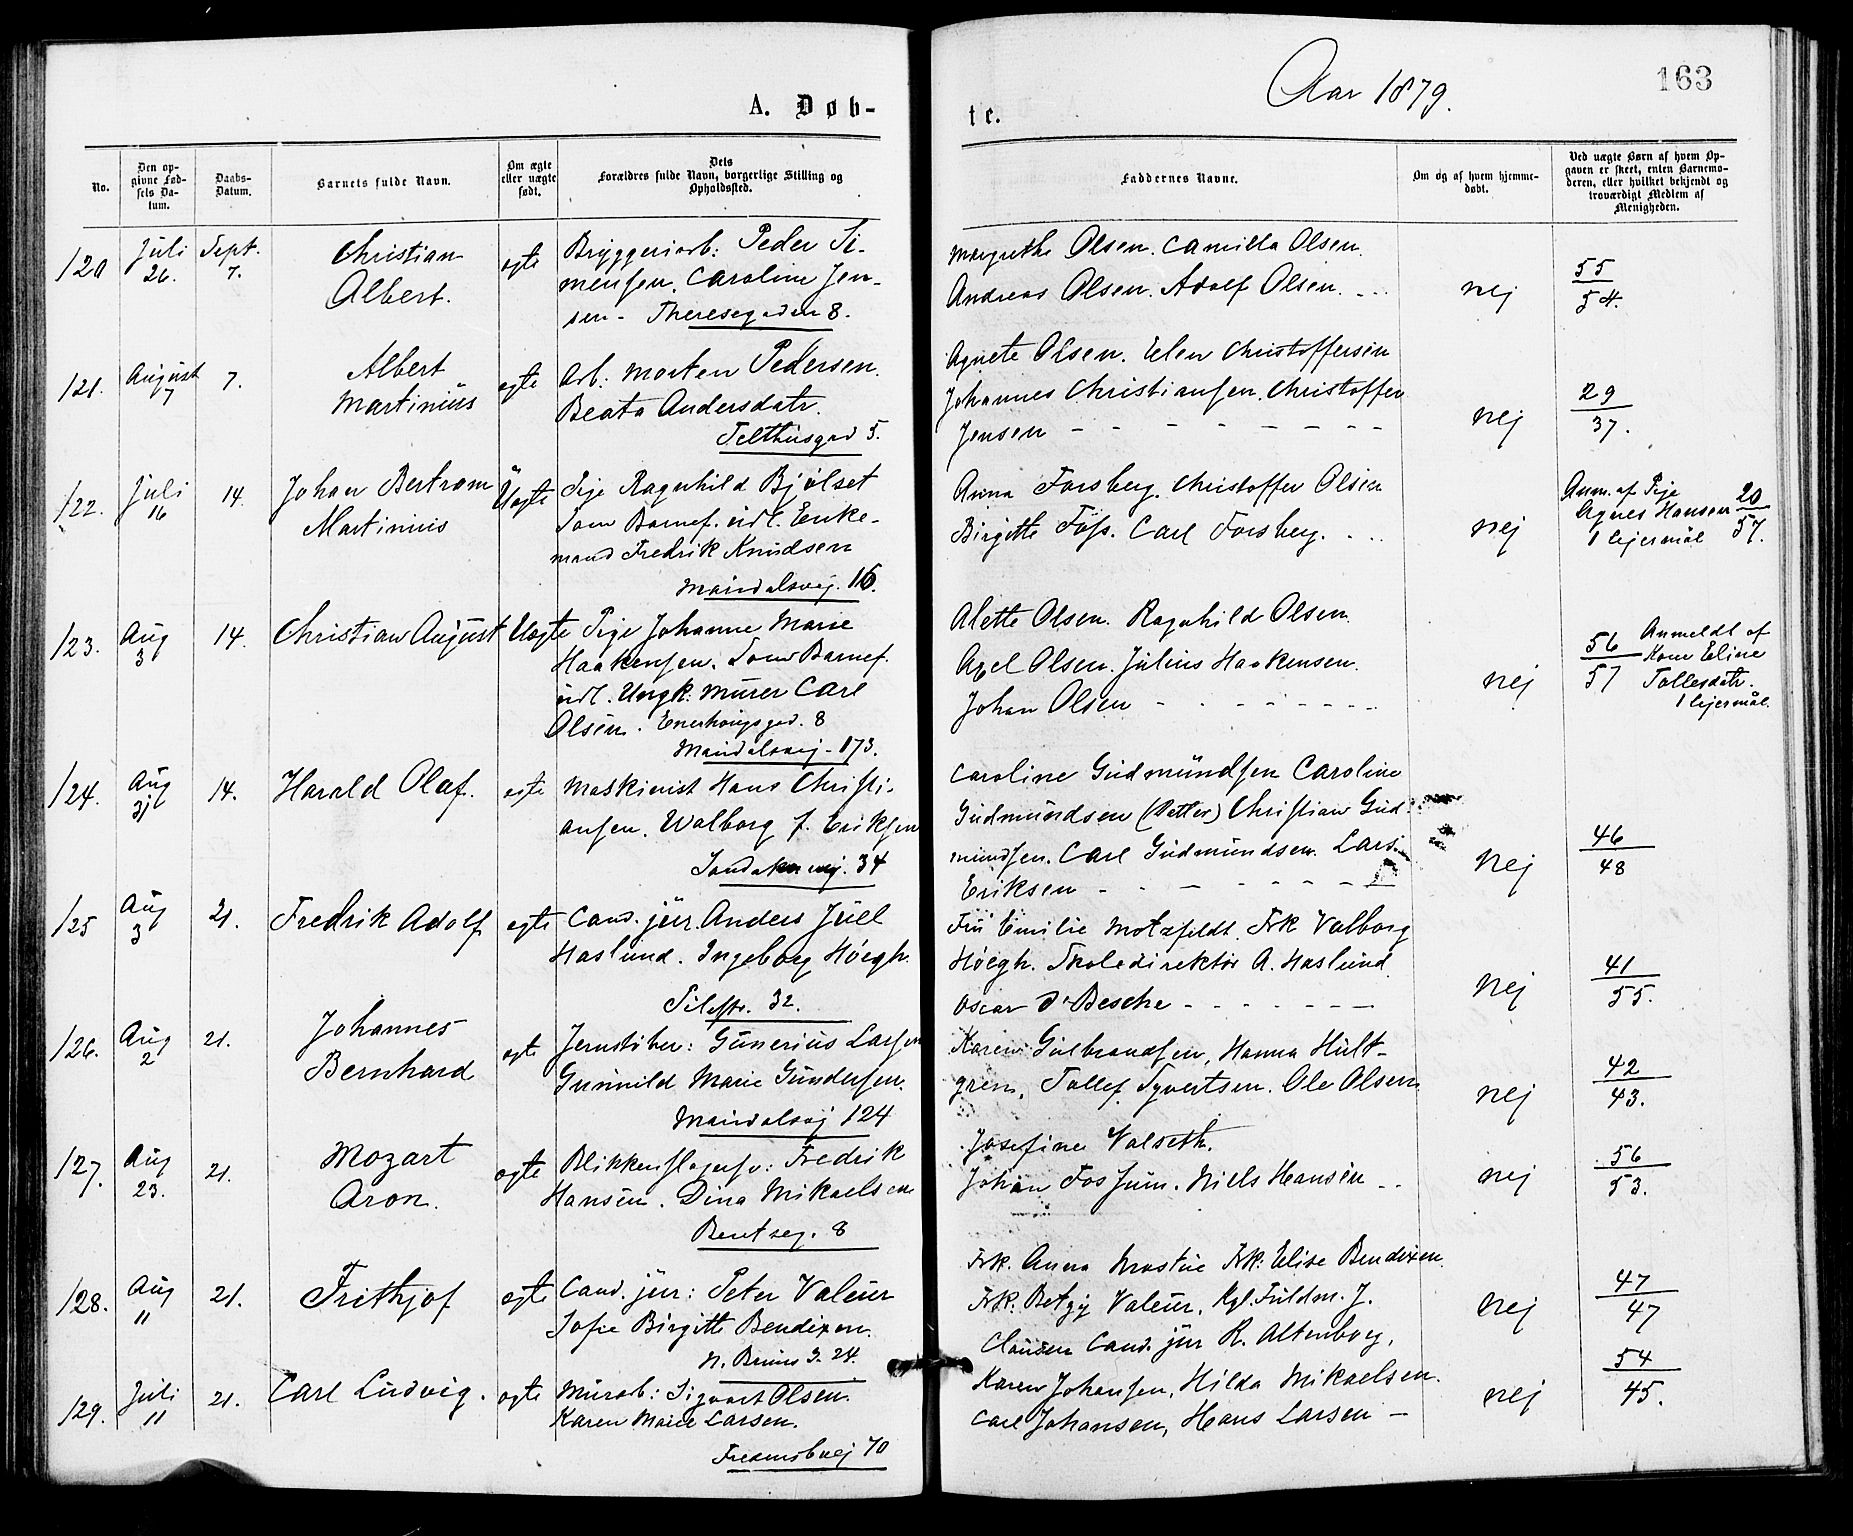 A. Døb-
te.
Aar 1879.
163
No.
Den op-
givne Fød-
sels Da-
tum.
Daabs-
Datum.
Barnets fulde Navn.
Om ægte
eller uægte
født.
Dets
Forældres fulde Navn, borgerlige Stilling og
Opholdssted.
Faddernes Navne.
Om og af hvem hjemme-
døbt.
Ved uægte Børn af hvem Op-
gaven er skeet, enten Barnemo-
deren, eller hvilket bekjendt og
troværdigt Medlem af
Menigheden.
120 Juli 26. Sept. 7.
Christian
Albert.
egte
Bryggeriarb: Peder Si-
mensen, Caroline Jen-
sen - Theresegaden 8.
Margrethe Olsen. Camilla Olsen.
Andreas Olsen. Adolf Olsen.
nej
55
54.
121. August 7 7.
Albert
Martinius
egte
Arb: Morten Pedersen.
Beata Andersdatr.
Telthusgad 5.
Agnete Olsen. Elen Christoffersen
Johannes Christiansen. Christoffer
Jensen
nej
29
37.
122. Juli 16 14.
Johan Bertram
Martinius
Uegte
Pige Ragnhild Bjølset
Som Barnef. udl. Enke-
mand Fredrik Knudsen
Maridalsvej. 16.
Anna Forsberg. Christoffer Olsen
Birgitte Foss. Carl Forsberg.
nej
Anm. af Pige
Agnes Hansen
1 lejermål
20
57.
123. Aug 3 14.
Christian August
Uegte
Pige Johanne Marie
Haakensen. Som Barnef.
udl. Ungk. Murer Carl
Olsen. Enerhougsgad. 8
Maridalsvej - 173.
Alette Olsen. Ragnhild Olsen.
Axel Olsen. Julius Haakensen.
Johan Olsen
nej
56
57
Anmeldt af
Kone Eline
Tollesdatr.
1 lejermål.
124. Aug 31 14.
Harald Olaf.
egte
Maskinist Hans Christi-
ansen. Walborg f. Eriksen
Sandakervej. 34
Caroline Gudmundsen Caroline
Gudmundsen (Datter) Christian Gud-
mundsen. Carl Gudmundsen. Lars
Eriksen
nej
46
48
125 Aug 3 21.
Fredrik Adolf
egte
Cand. jur. Anders Juell
Haslund. Ingeborg Høegh.
Pilestr. 32.
Fru Emilie Motzfeldt. Frk Valborg
Høegh. Skoledirektør A. Haslund
Oscar d'Besche
nej
41
55.
126. Aug 2 21.
Johannes
Bernhard
egte
Jernstøber: Gunerius Larsen
Gunnild Marie Gundersen.
Maridalsvej 124
Karen Gulbrandsen, Hanna Hult-
gren, Tollef Syvertsen. Ole Olsen
nej
42
43.
127. Aug 23. 21.
Mozart
Aron.
egte
Blikkenslagersv: Fredrik
Hansen. Dina Mikaelsen
Bentseg. 8
Josefine Valseth.
Johan Fossum. Niels Hansen
nej
56
53.
128. Aug 11 21.
Frithjof
egte
Cand. jur: Peter Valeur
Sofie Birgitte Bendixen.
N. Bruns G. 24.
Frk. Anna Mostue Frk: Elise Bendixen.
Frk. Betzy Valeur, Kgl. Fuldm. J.
Clausen Cand. jur R. Altenborg,
nej
47
47
129. Juli 11 21.
Carl Ludvig.
egte
Murarb: Sigvart Olsen.
Karen Marie Larsen.
Fredensbvej 70
Karen Johansen, Hilda Mikaelsen.
Carl Johansen, Hans Larsen
nej
54
45.